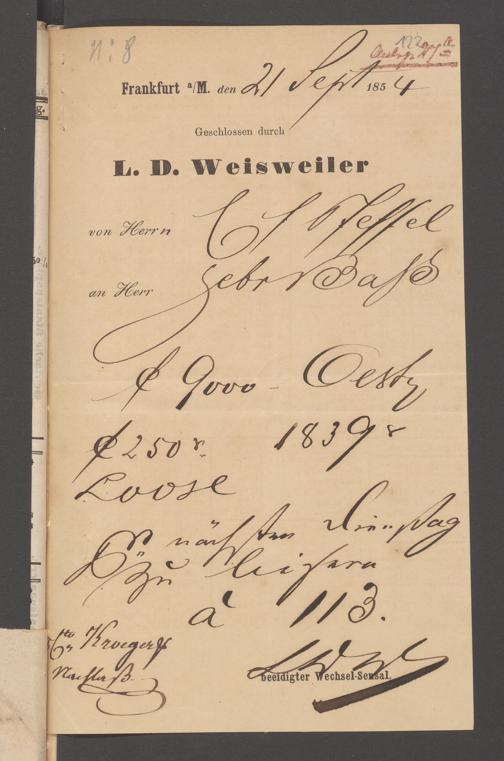 N: 8 122
Frankfurt a/M. den 21 Sept 1854
Geschlossen durch
L. D. Weisweiler
von Herrn C Steffel
an Herr Gebr Bass
f 9000 - Oestr
f 250 r 1839 r
Loose
nächsten Dienstag
zu liefern
à 113.
Kroegers
Nachlass
beeidigter Wechsel-Sensal.